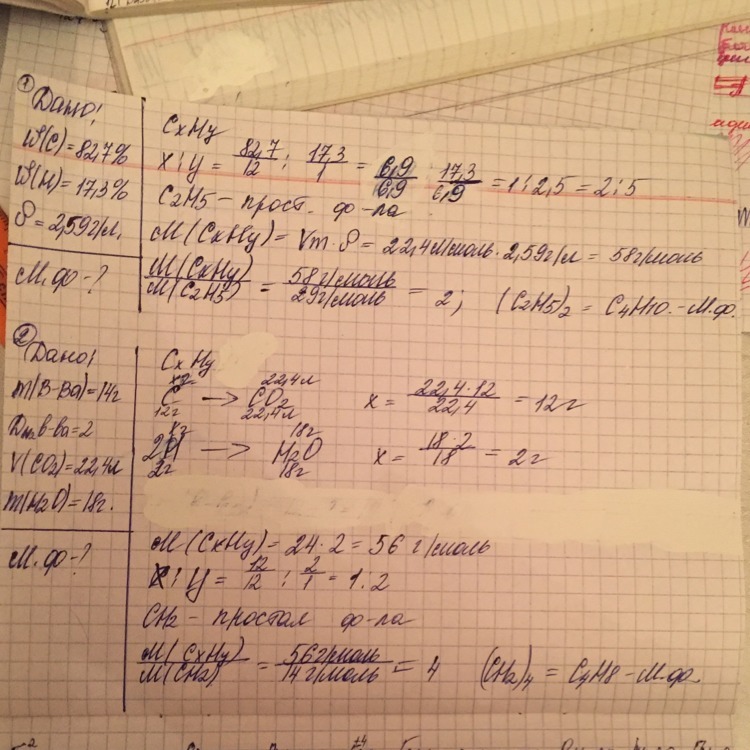 ① Дано!
W(C) = 82,7%
W(H) = 17,3%
ρ = 2,59 г/л.
М.ф-?
CxHy
x : y = 82,7/12 : 17,3/1 = 6,9/6,9 : 17,3/6,9 = 1 : 2,5 = 2 : 5
C2H5 - прост. ф-ла
M(CxHy) = Vm · ρ = 22,4 л/моль · 2,59 г/л = 58 г/моль
M(CxHy)/M(C2H5) = 58 г/моль/29 г/моль = 2; (C2H5)2 = C4H10. - М.ф.
② Дано!
m(в-ва) = 14 г
DN2 в-ва = 2
V(CO2) = 22,4 л
m(H2O) = 18 г.
М.ф-?
CxHy
xг 22,4 л
C → CO2 x = 22,4·12/22,4 = 12 г
12 г 22,4 л
xг 18 г
2H → H2O x = 18·2/18 = 2 г
2 г 18 г
M(CxHy) = 24·2 = 56 г/моль
x : y = 12/12 : 2/1 = 1 : 2
CH2 - простая ф-ла
M(CxHy)/M(CH2) = 56 г/моль/14 г/моль = 4 (CH2)4 = C4H8 - М.ф.